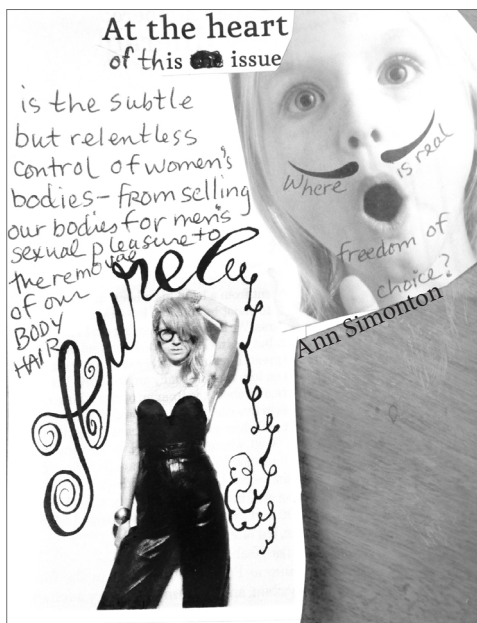 At the heart
of this issue
is the subtle
but relentless
control of women's
bodies – from selling
our bodies for men's
sexual pleasure to
the removal
of our
BODY
HAIR
Where is real
freedom of
choice?
Ann Simonton